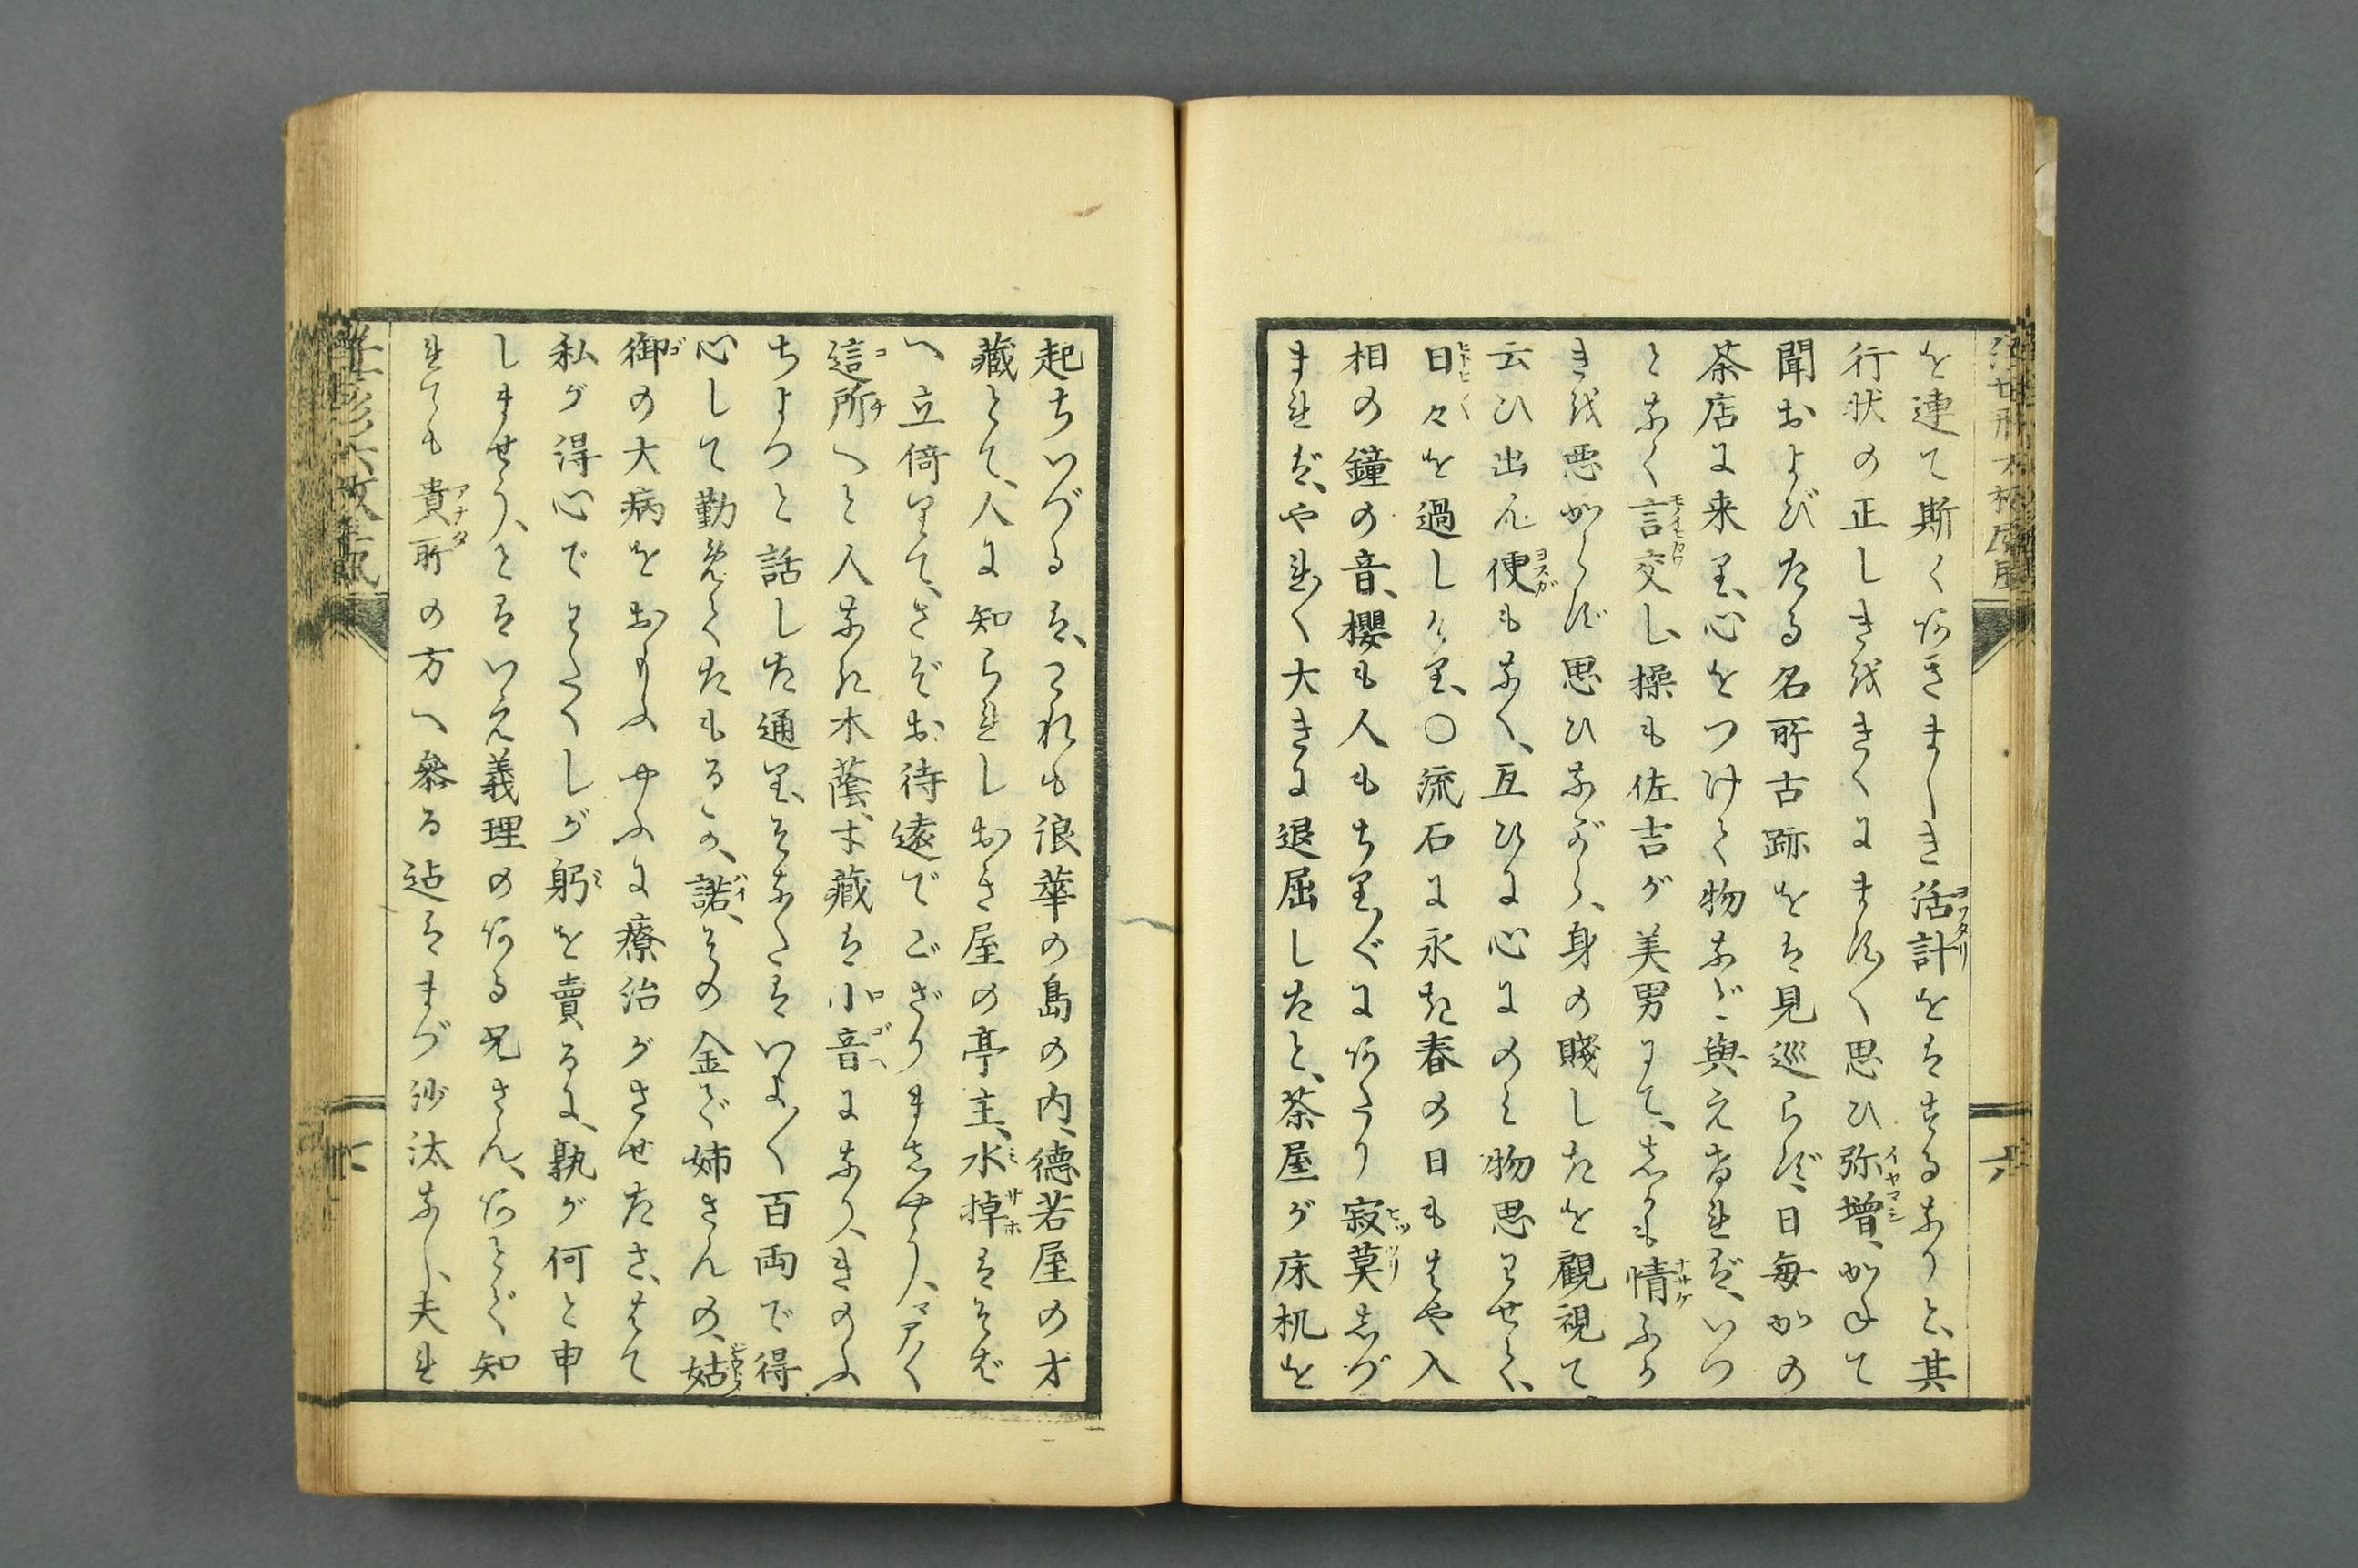 を連て斯くあさましき活計をはするなりと、其
行状の正しきを きくにますく思ひ弥増、かねて
聞およびたる名所古跡をは見巡らず、日毎かの
茶店に来り、心をつけて物など與え居れば、いつ
となく言交し、操も佐吉が美男にて、しかも情ふか
きを悪からず思ひながら、身の賤しきを観視て
云ひ出ん便もなく、互ひに心にのみ物思わせて、
日々を過しけり、〇流石に永き春の日もはや入
相の鐘の音、櫻も人もちりぐにあたり寂莫しづ
まれば、やれく大きに退屈したと、茶屋が床机を
起ちいづるは、これも浪華の島の内、德若屋の才
藏とて、人に知られしおき屋の亭主、水掉はそば
へ立倚りて、さぞお待遠でござりましやう、マアく
這所へと人なき木蔭、才藏は小音になり、きのふ
ちよつと話した通り、そなたはいよく百両で得
心して勤めてくたもるか、諾、その金で姉さんの、姑
御の大病をおもふやふに療治がさせたさ、はて
私が得心でわたくしが躬を賣るに、孰が何と申
しませう、とはいえ義理のある兄さん、あとで知
れても貴所の方へ參る迠はまづ沙汰なし、夫れ